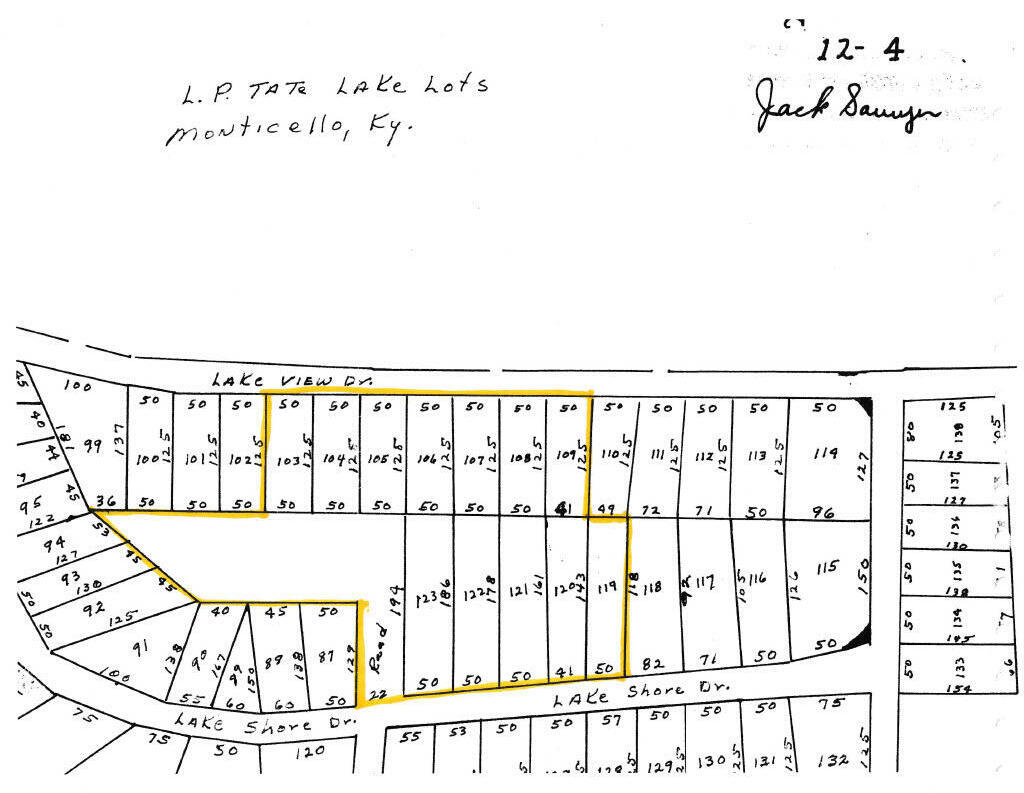 12- 4
Jack Sawyer
L.P. TATE LAKE LOTS
Monticello, Ky.
LAKE VIEW DR.
45 100 50 50 50 50 50 50 50 50 50 50 50 50 50 50 50 125
40 181 99 137 100 125 101 125 102 125 103 125 104 125 105 125 106 125 107 125 108 125 109 125 110 125 111 125 112 125 113 125 114 127 80 138 125
44 45 50 137 127
36 50 50 50 50 50 50 50 50 50 41 49 72 71 50 96
95 122 53 50 136 130
94 127 45 45
93 130 50 135 138
92 125 50 50
Road 194 123 186 122 178 121 161 120 143 119 118 118 117 105 116 126 115 150 50 134 145
40 45 50
91 100 138 90 167 150 89 138 87 129
55 60 60 50 22 50 50 50 41 50 82 71 50 50 50 133 154
LAKE SHORE DR.
LAKE SHORE DR.
75 75 50 120 55 53 50 50 57 50 50 50 75
129 130 125 131 125 132 125